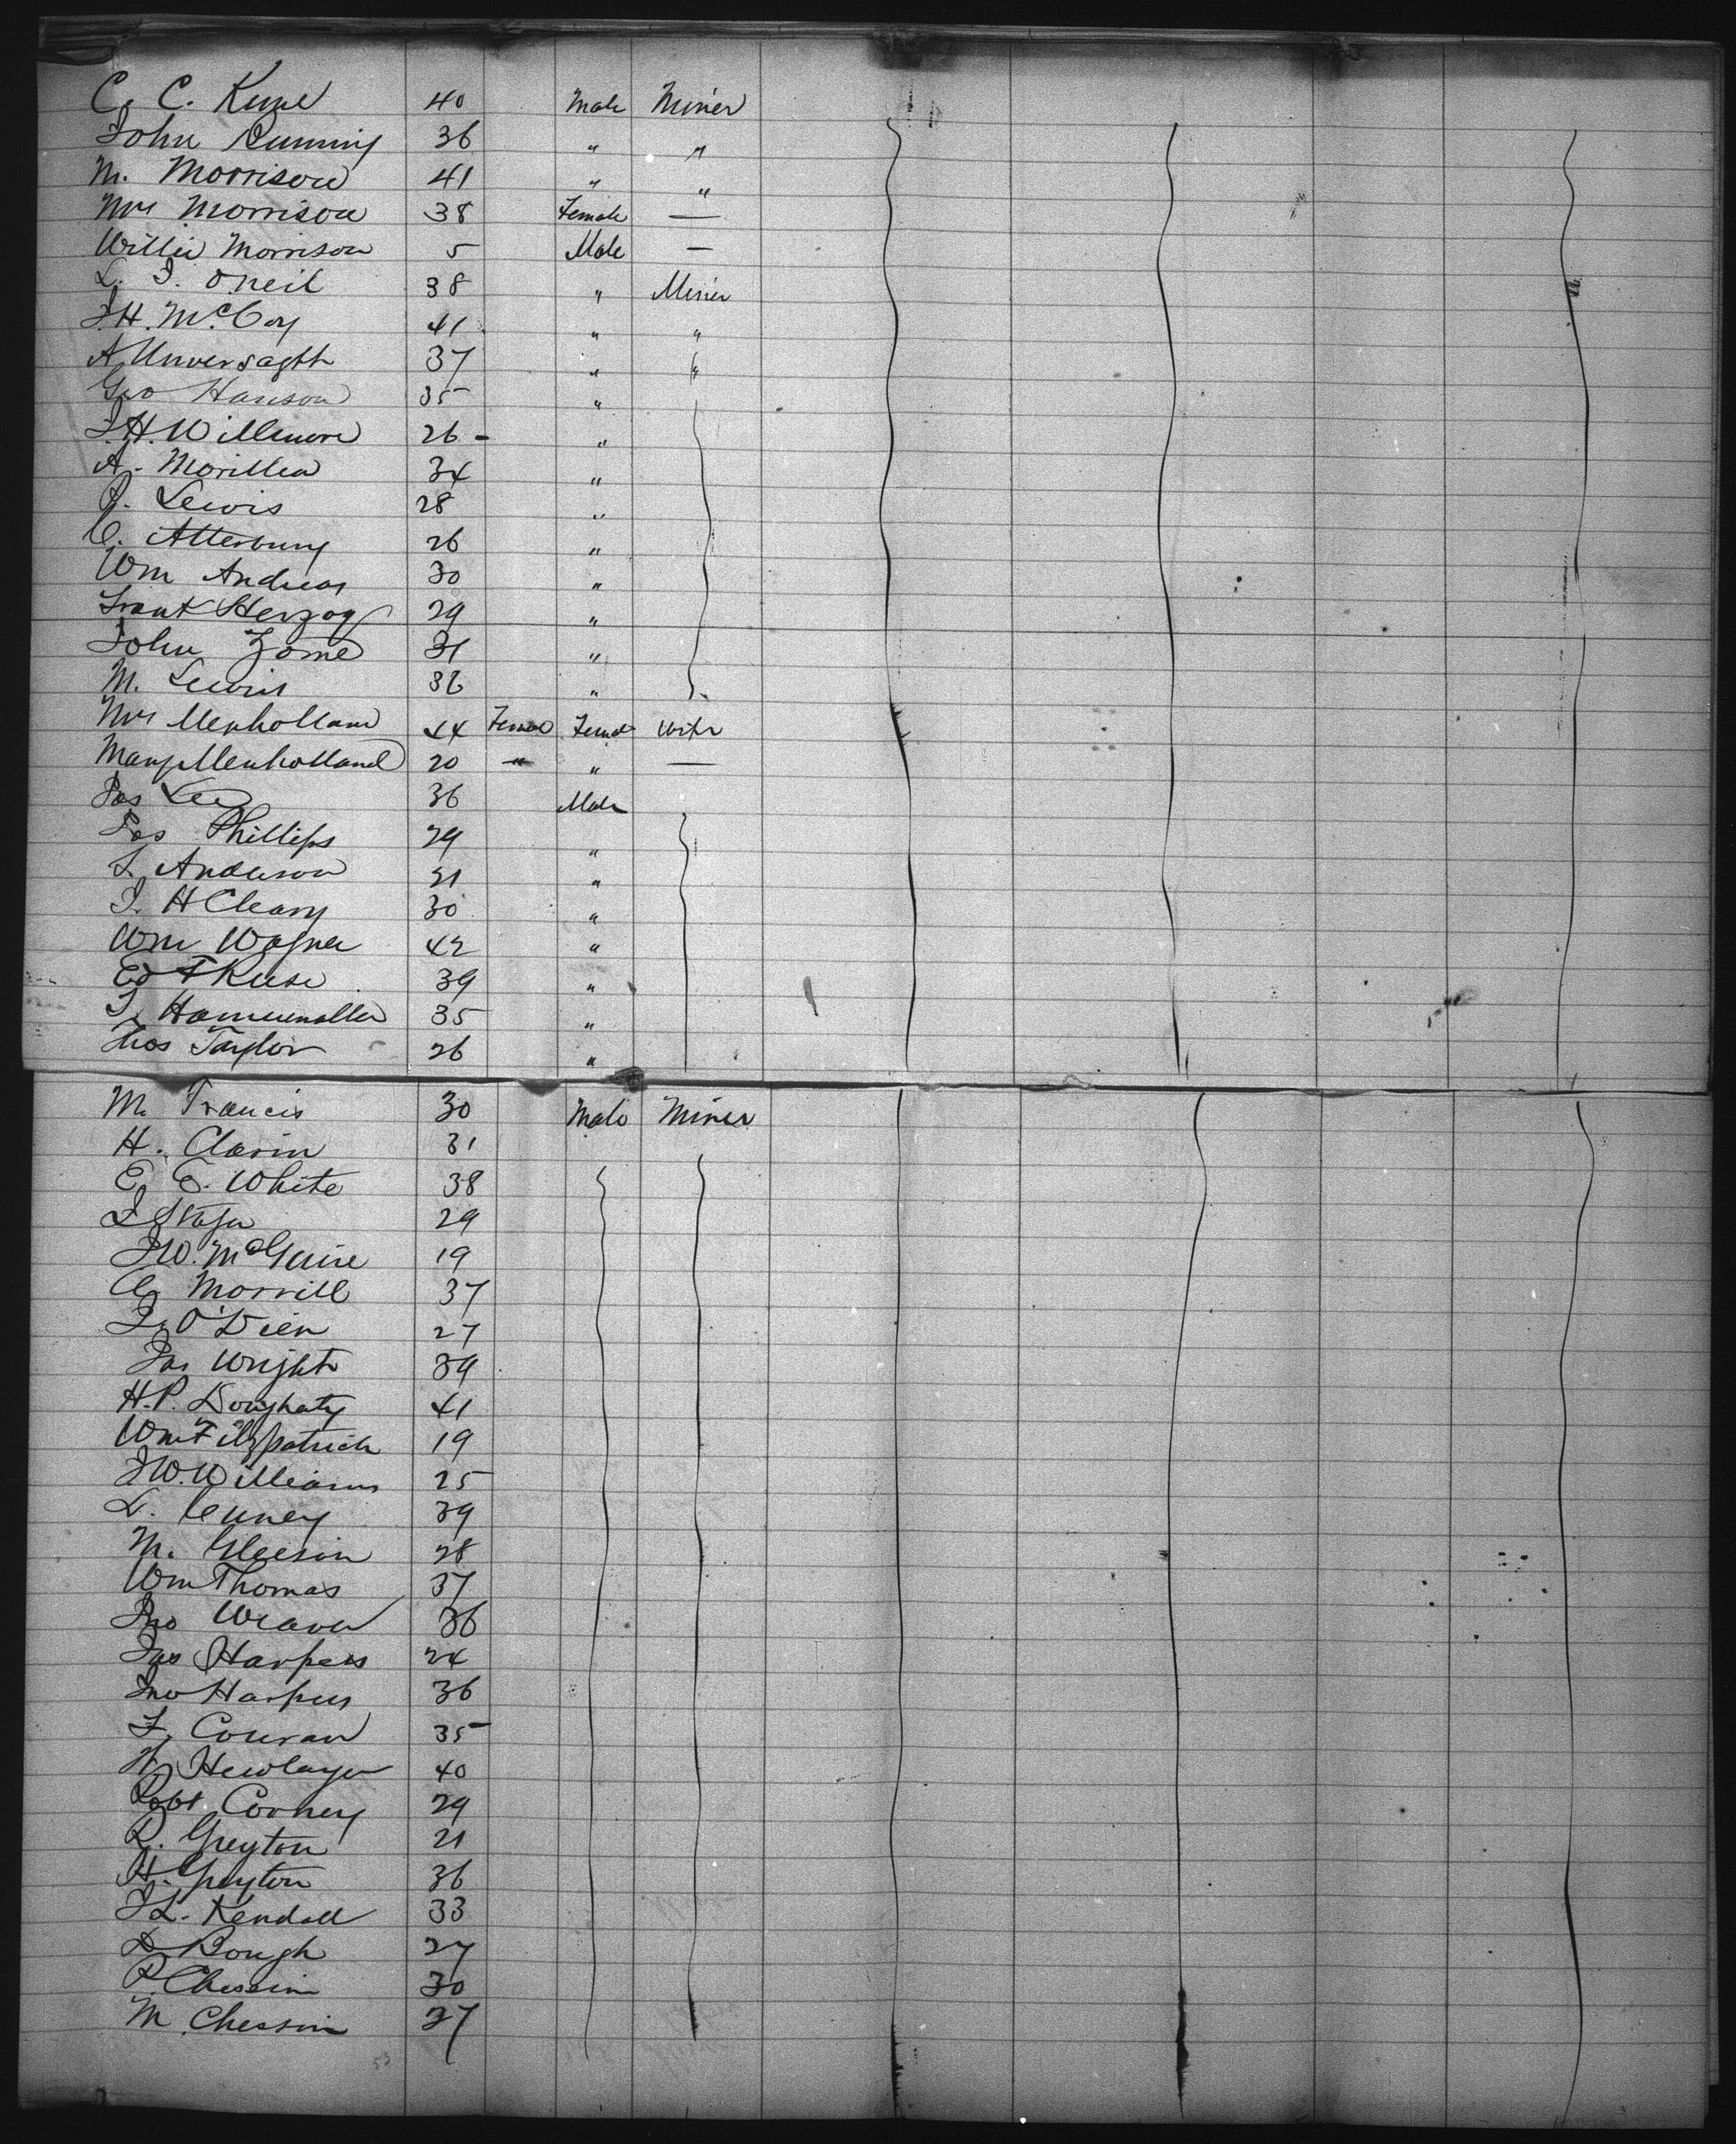 C. C. Kune 40 Male Miner
John Cuming 36 " "
M. Morrison 41 " "
Mrs Morrison 38 Female —
Willie Morrison 5 Male —
L. J. Oneil 38 " Miner
J. H. McCoy 41 " "
A Unversagtth 37 " "
Geo Hanson 35 "
J. H. Willmore 26 - "
A. Morillea 34 "
P. Lewis 28 "
C. Atterbury 26 "
Wm Andreas 30 "
Frank Herzog 29 "
John Zome 31 "
M. Lewis 36 "
Mrs Menholland 44 Female Femal Wife
Mary Menholland 20 " " —
Jas Lee 36 Male
Jas Phillips 29 "
J. Anderson 21 "
J. H Cleary 30 "
Wm Wagner 42 "
Ed F Kuse 39 "
J. 35 "
Thos Taylor 26 "
M. Francis 30 Male Miner
H. Clavin 31
E. E. White 38
J 29
J W. McGuire 19
C. Morrill 37
J. O'Dien 27
Jas Wright 39
H. P. Doughaty 41
Wm Fitzpatrick 19
J W. Williams 25
L. Cuney 39
M. Gleeson 28
Wm Thomas 37
Jno Weaver 36
Jas Harpers 24
Jno Harpers 36
F. Couran 35
Hewlayer 40
Robt. Cooney 29
R. Greyton 21
H. Greyton 36
J L. Kendall 33
D. Bough 27
P. Chessin 30
M. Chessin 27
53